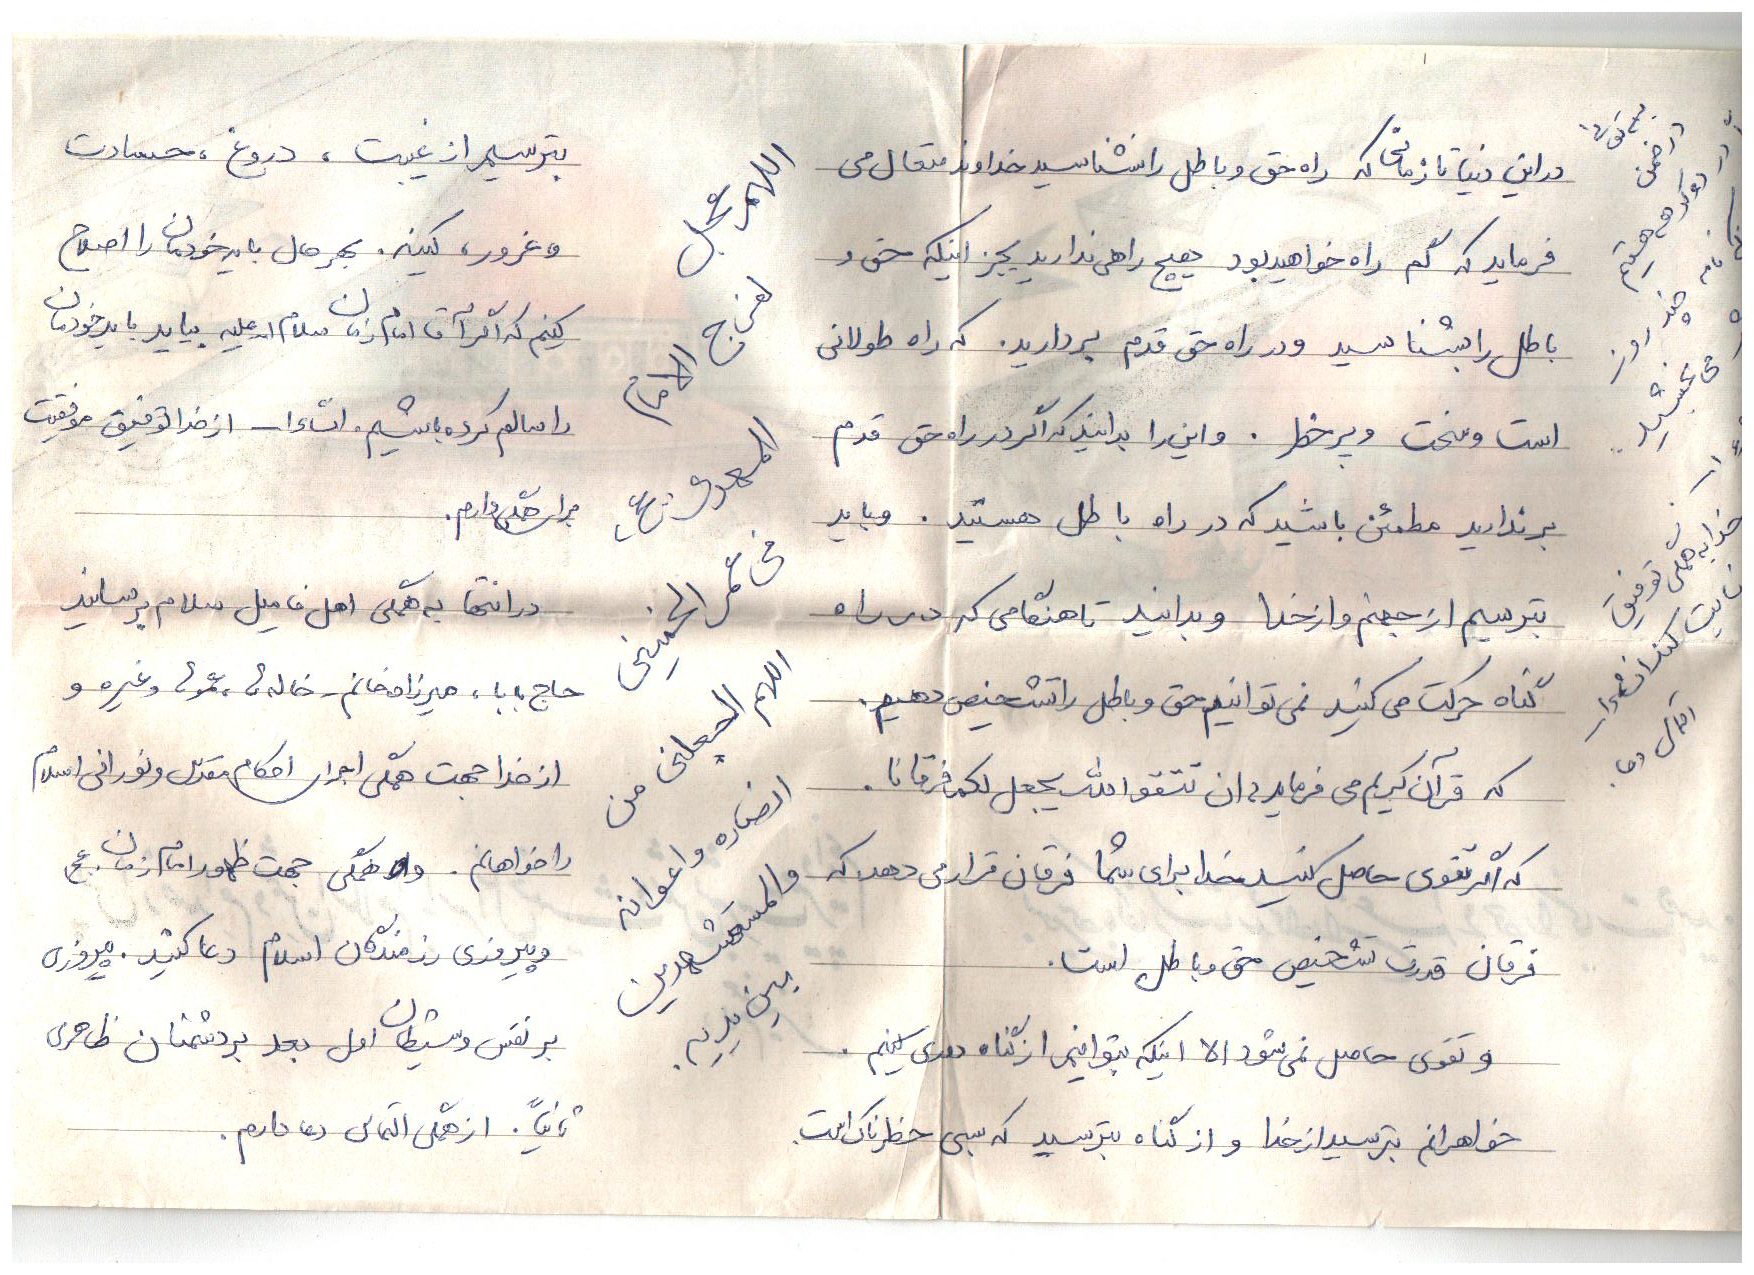 در این دنیا تا زمانی که راه حق و باطل را نشناسید خداوند متعال می
فرماید که گم راه خواهید بود هیچ راهی ندارید بجز اینکه حق و
باطل را بشناسید و در راه حق قدم بردارید. که راه طولانی
است و سخت و پر خطر. و این را بدانید که اگر در راه حق قدم
برندارید مطمئن باشید که در راه باطل هستید. و باید
بترسیم از جهنم و از خدا و بدانید تا هنگامی که در راه
گناه حرکت می کنید نمی توانیم حق و باطل را تشخیص دهیم.
که قرآن کریم می فرماید ان تتقوا الله یجعل لکم فرقانا.
که اگر تقوی حاصل کنید خدا برای شما فرقان قرار می دهد که
فرقان قدرت تشخیص حق و باطل است.
و تقوی حاصل نمی شود الا اینکه بتوانیم از گناه دوری کنیم.
خواهرانم بترسید از خدا و از گناه بترسید که بسی خطرناک است.
در ضمن
در دوکوهه هستیم
نامه چند روز
می بخشید
خدا به همگی توفیق
عنایت کند انشاءا...
التماس دعا
بترسیم از غیبت، دروغ، حسادت
و غرور، کینه. بهرحال باید خودمان را اصلاح
کنیم که اگر آقا امام زمان سلام ا... علیه بیاید باید خودمان
را سالم کرده باشیم. انشاءا... از خدا توفیق موفقیت
برای همگی دارم.
در انتها به همگی اهل فامیل سلام برسانید
حاج بابا، میرزاده خانم - خاله ها، عمو ها و غیره و
از خدا جهت همگی اجرای احکام مقدس و نورانی اسلام
را خواهانم. و همگی جهت ظهور امام زمان عج
و پیروزی رزمندگان اسلام دعا کنید. پیروزی
بر نفس و شیطان اول بعد بر دشمنان ظاهری
ثانیاً. از همگی التماس دعا دارم.
اللهم عجل
لفرج الامام
المهدی (عج)
فی عمر الخمینی.
اللهم اجعلنی من
انصاره و اعوانه
والمستشهدین
بین یدیه.